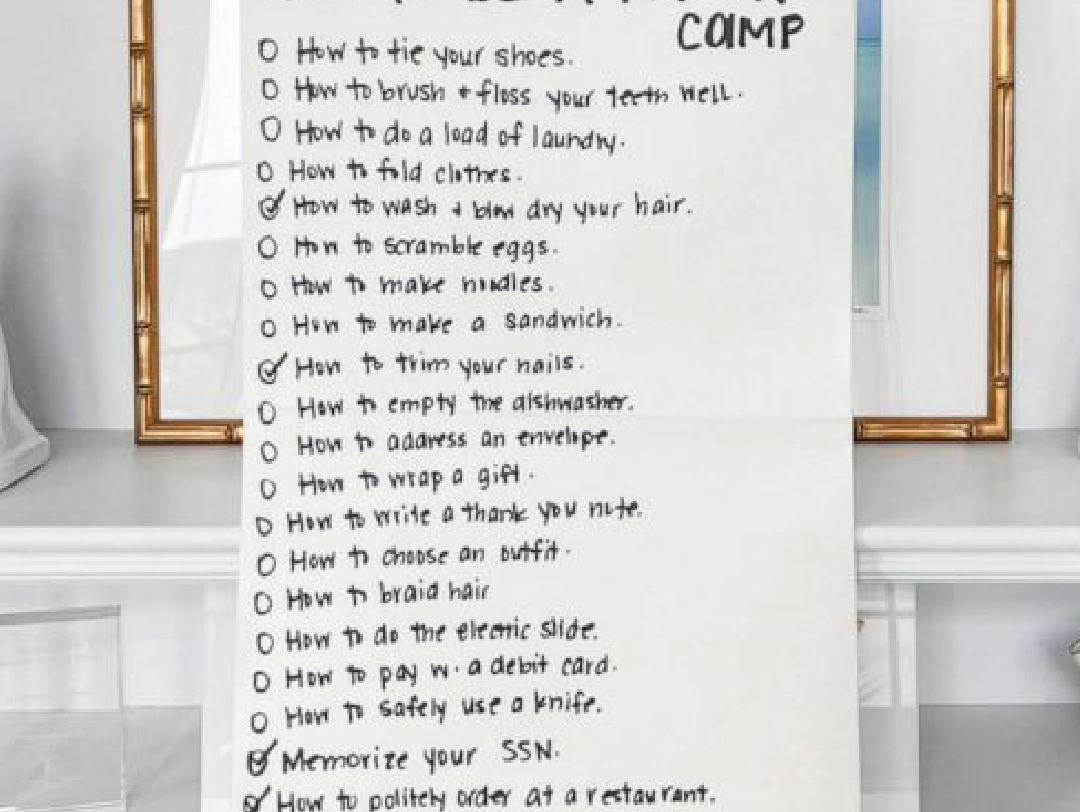 CAMP
How to tie your shoes.
How to brush + floss your teeth well.
How to do a load of laundry.
How to fold clothes.
How to wash + blow dry your hair.
How to scramble eggs.
How to make noodles.
How to make a sandwich.
How to trim your nails.
How to empty the dishwasher.
How to address an envelope.
How to wrap a gift.
How to write a thank you note.
How to choose an outfit.
How to braid hair
How to do the electric slide.
How to pay w. a debit card.
How to safely use a knife.
Memorize your SSN.
How to politely order at a restaurant.